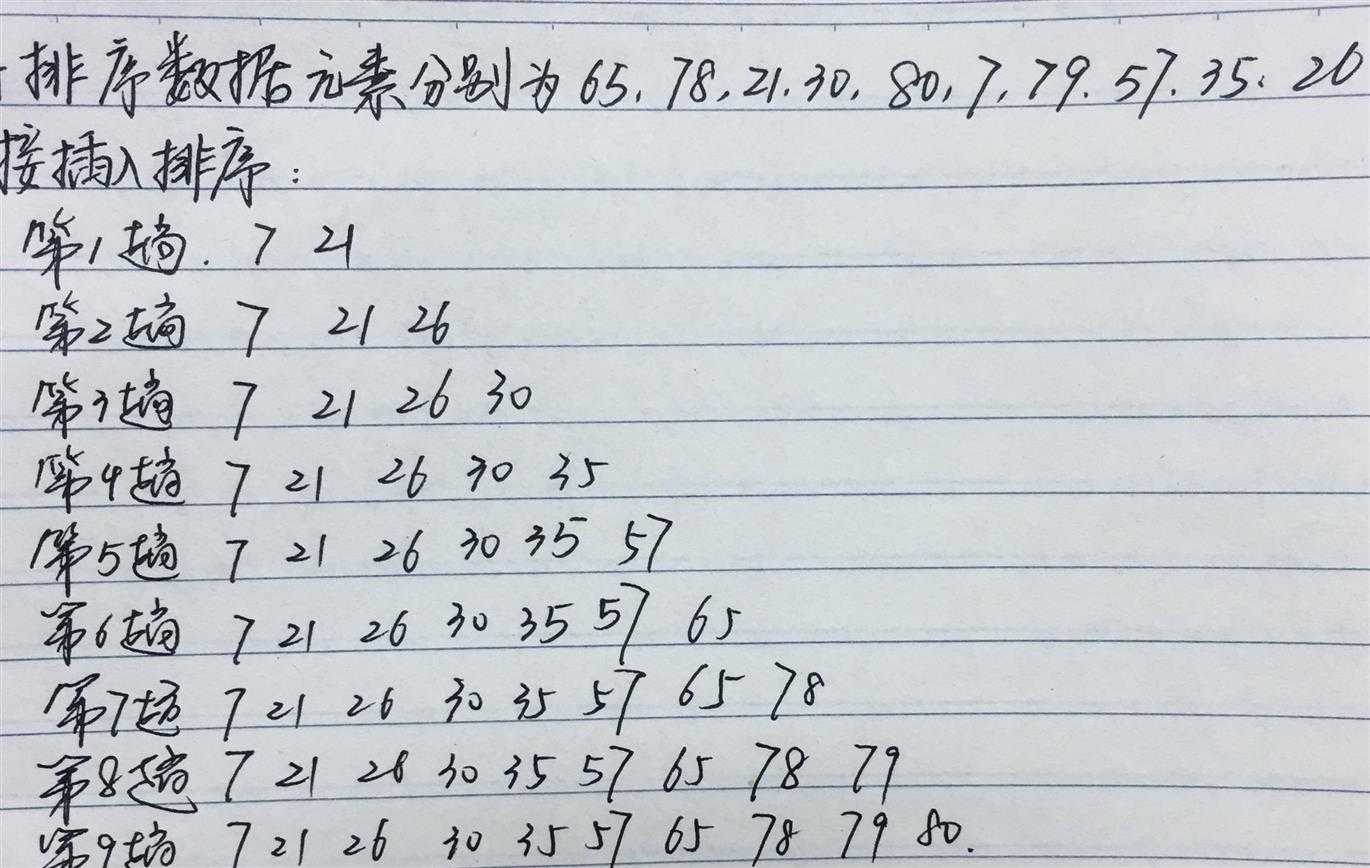 排序数据元素分别为 65, 78, 21. 30, 80, 7, 79. 57. 35. 26
接插入排序:
第1趟. 7 21
第2趟 7 21 26
第3趟 7 21 26 30
第4趟 7 21 26 30 35
第5趟 7 21 26 30 35 57
第6趟 7 21 26 30 35 57 65
第7趟 7 21 26 30 35 57 65 78
第8趟 7 21 26 30 35 57 65 78 79
第9趟 7 21 26 30 35 57 65 78 79 80.